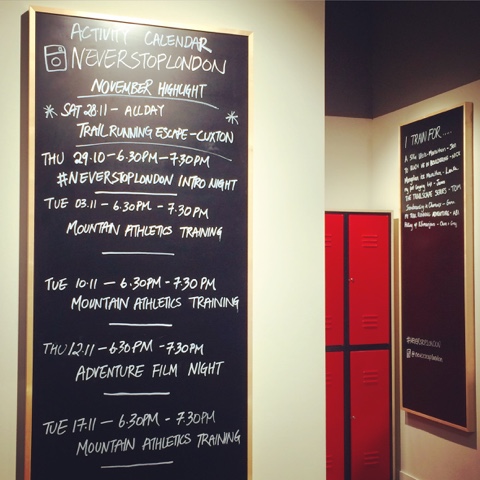 ACTIVITY CALENDAR
NEVERSTOPLONDON
NOVEMBER HIGHLIGHT
* SAT 28.11 - ALL DAY *
TRAIL RUNNING ESCAPE - CUXTON
THU 29.10 - 6.30PM - 7.30PM
#NEVERSTOPLONDON INTRO NIGHT
TUE 03.11 - 6.30PM - 7.30PM
MOUNTAIN ATHLETICS TRAINING
TUE 10.11 - 6.30PM - 7.30PM
MOUNTAIN ATHLETICS TRAINING
THU 12.11 - 6.30PM - 7.30PM
ADVENTURE FILM NIGHT
TUE 17.11 - 6.30PM - 7.30PM
MOUNTAIN ATHLETICS TRAINING
I TRAIN FOR ....
THE TRAILSCAPE SERIES - TOM
#NEVERSTOPLONDON
@neverstoplondon